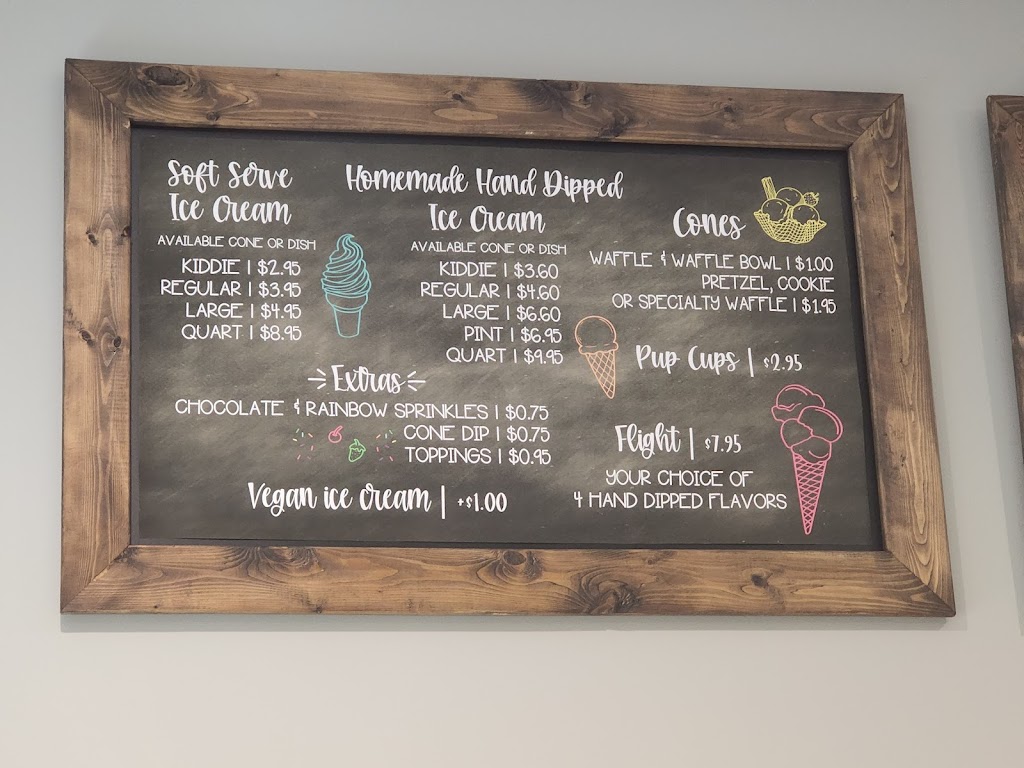 Soft Serve
Ice Cream
AVAILABLE CONE OR DISH
KIDDIE | $2.95
REGULAR | $3.95
LARGE | $4.95
QUART | $8.95
Homemade Hand Dipped
Ice Cream
AVAILABLE CONE OR DISH
KIDDIE | $3.60
REGULAR | $4.60
LARGE | $6.60
PINT | $6.95
QUART | $9.95
Cones
WAFFLE & WAFFLE BOWL | $1.00
PRETZEL, COOKIE
OR SPECIALTY WAFFLE | $1.95
Pup Cups | $2.95
Extras
CHOCOLATE & RAINBOW SPRINKLES | $0.75
CONE DIP | $0.75
TOPPINGS | $0.95
Flight | $7.95
YOUR CHOICE OF
4 HAND DIPPED FLAVORS
Vegan ice cream | +$1.00